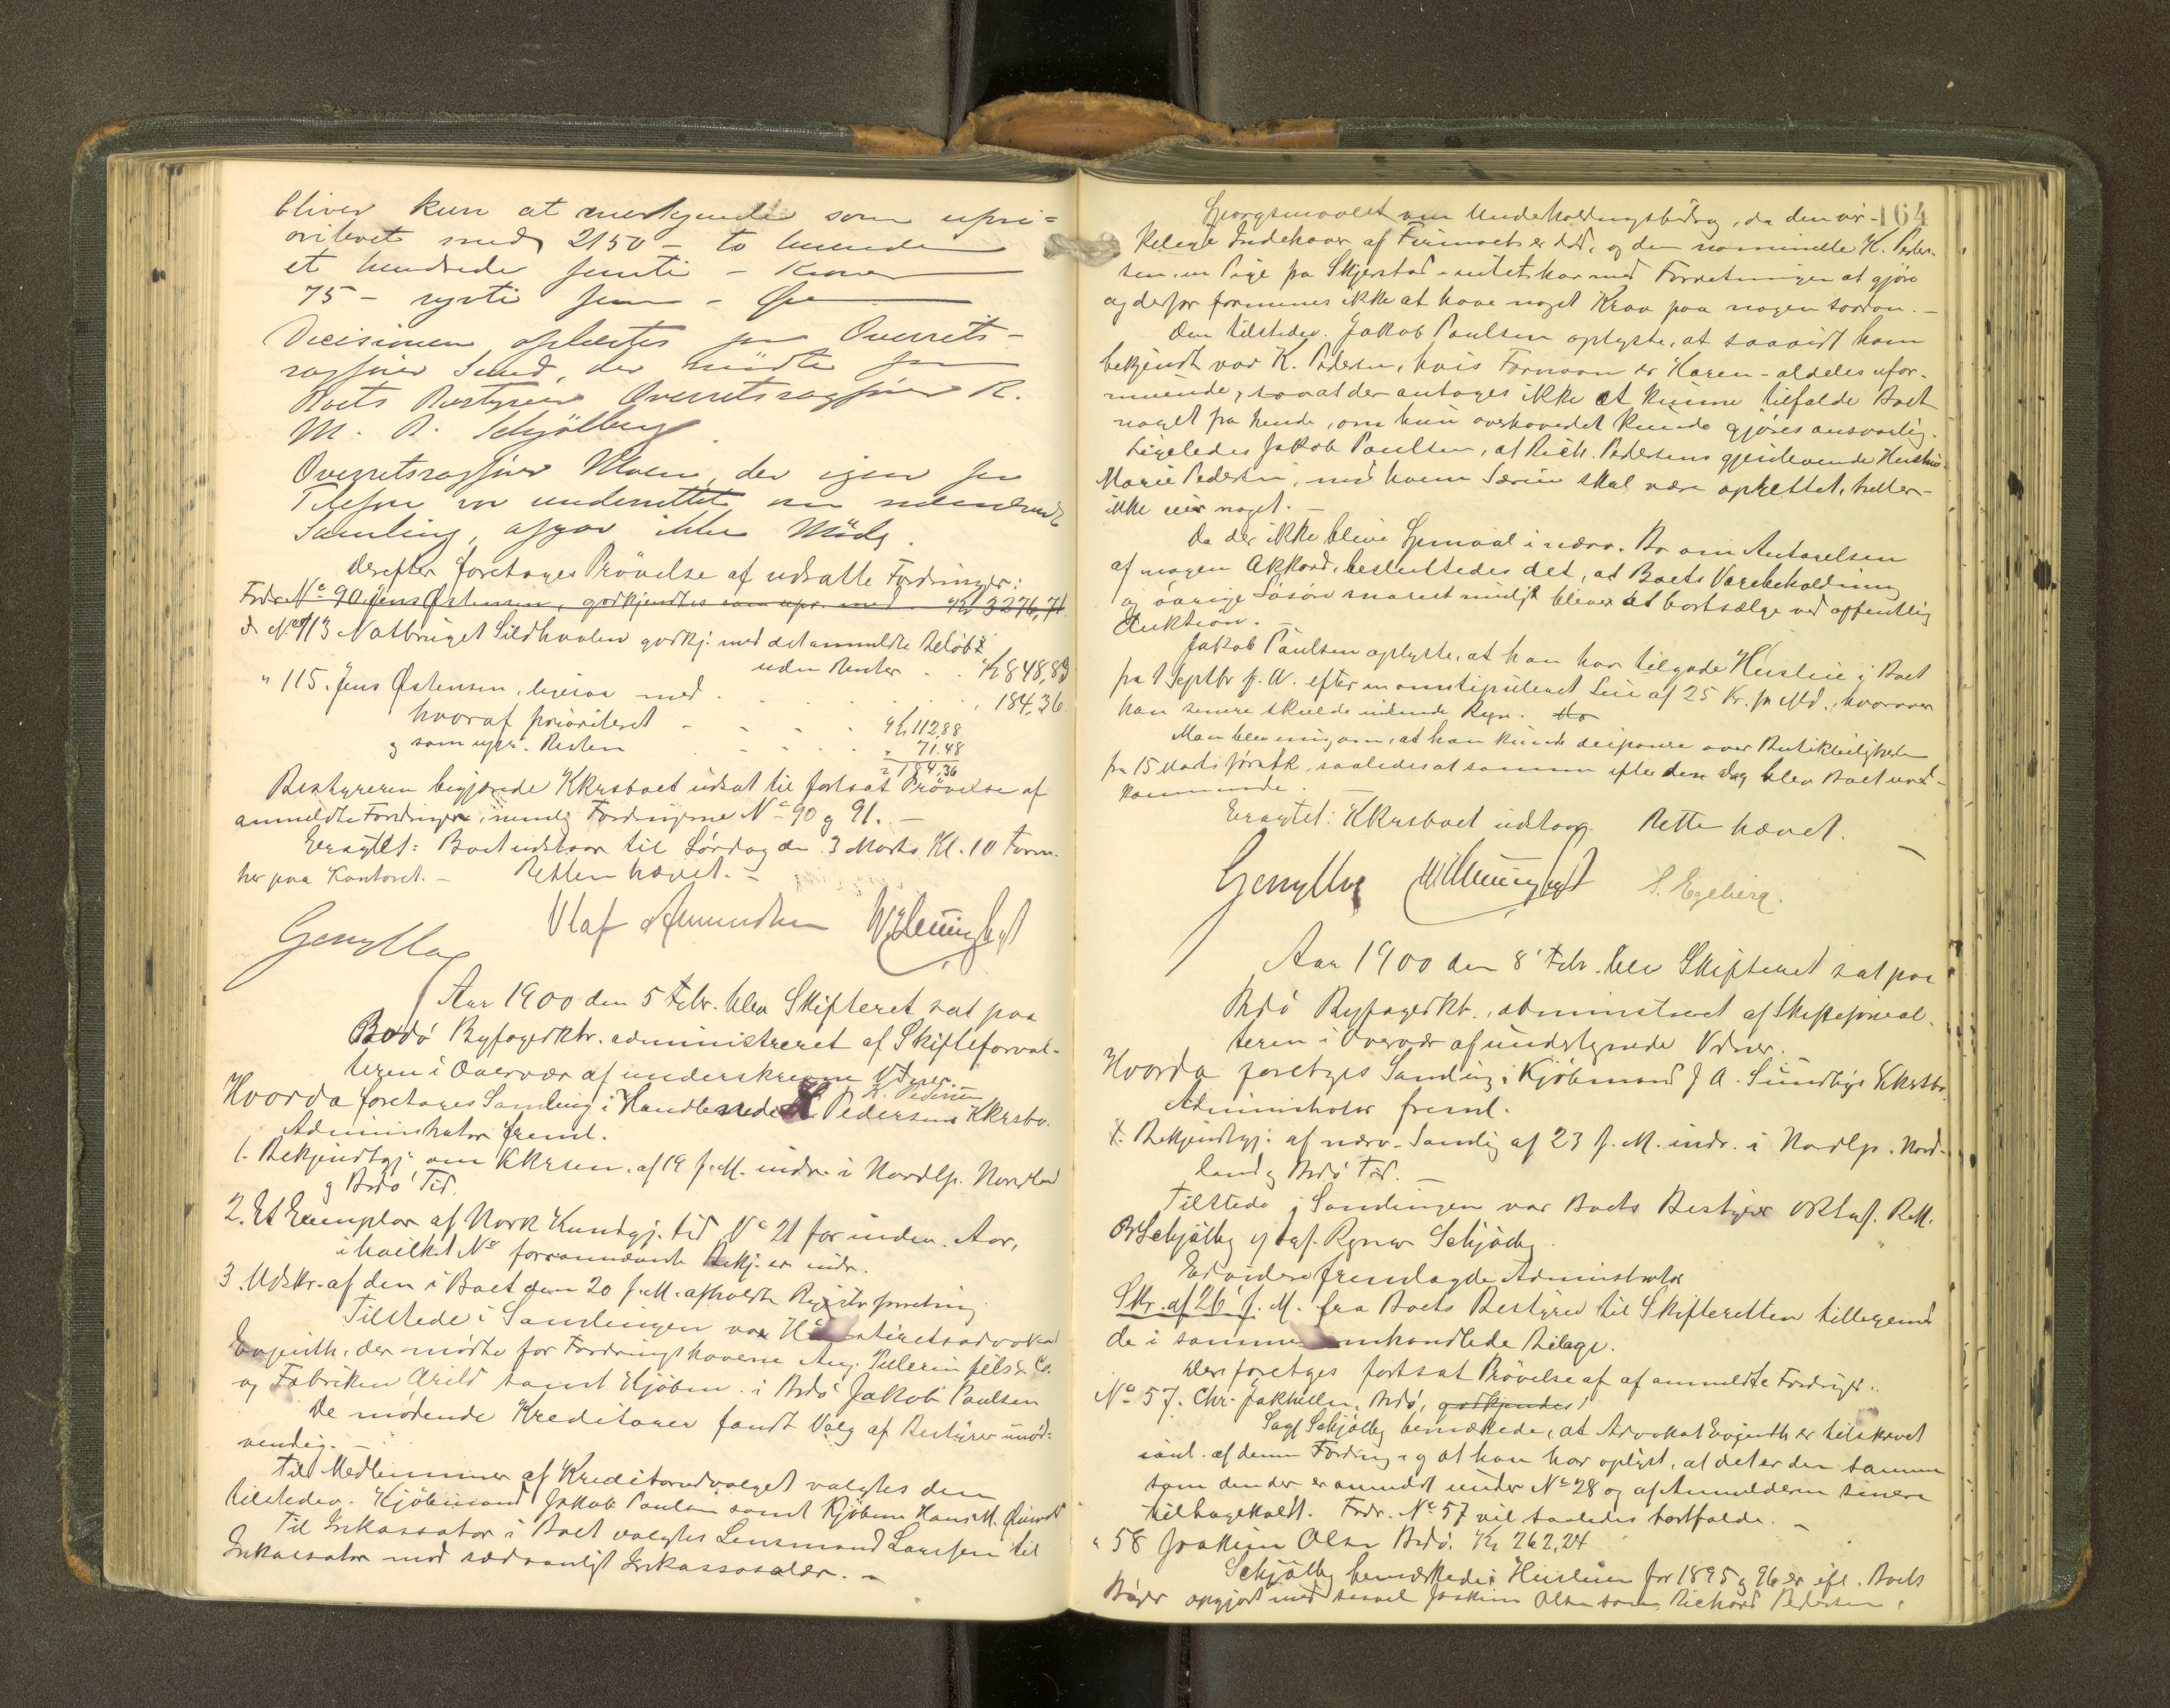 bliver kun at anerkjende som upri-
oritevet med 2150 - to tusende
et hundrede femti - Kroner
75 - sytti fem - Øre
Decisionen oplæstes for Overrets-
sagfører Sund, der mødte for
Boets Bestyrer Overretssagfører R.
M. B. Schjølberg.
Overretssagfører Moen, der igen for
Telefon var underrettet om nærværende
Samling, afgav ikke Møde.
Derefter foretoges Prøvelse af udsatte Fordringer:
Fordr. No 90 Jens Østensen, godkjendtes som upr. med Kr 3276,71.
do No 113 Notbruget Sildhvalen godkj. med det anmeldte Beløb
uden Renter . . Kr 848,89
" 115. Jens Østensen, ligesaa med . . . . . 184,36
hvoraf prioriteret - - - Kr 112,88
og som upr. Resten - - - " 71.48
" 184,36
Bestyreren begjærede Kkrsboet udsat til fortsat Prøvelse af
anmeldte Fordringer, nemlig Fordringerne No 90 og 91. -
Eragtet: Boet udstaar til Lørdag den 3 Marts Kl. 10 Form.
her paa Kontoret. - Retten hævet. -
Olaf Amundsen
Aar 1900 den 5 Febr. blev Skifteret sat paa
Bodø Byfogedktr. administreret af Skifteforval-
teren i Overvær af underskrevne Vidner.
K. Pedersen
Hvorda foretoges Samling i Handlende Pedersens Kkrsbo.
Administrator freml.
1. Bekjendtgj. om Kkrsen af 19 f. M. indr. i Nordlp. Nordland
og Bodø Tid.
2. Et Exemplar af Norsk Kundgj. tid No 21 for inden. Aar,
i hvilket No forannævnte Bekj. er indr.
3. Udskr. af den i Boet den 20 f. M. afholdte Registr. forretning
Tilstede i Samlingen var
Evjenth, der mødte for Fordringshaverne Aug. Pellerin fils & Co.
og Fabriken Arild samt Kjøbm. i Bodø Jakob Paulsen
De mødende Kreditorer fandt Valg af Bestyrer unød-
vendig. -
Til Medlemmer af Kreditorudvalget valgtes den
tilstedev. Kjøbmand Jakob Paulsen samt Kjøbm. Hans M.
Til Inkassator i Boet valgtes Lensmand Larssen til
Inkassator mod sædvanligt Inkassosalær. -
164
Spørgsmaalet om Underholdningsbidrag, da den vir-
kelige Indehaver af Firmaet er død, og den nominelle K. Peder-
sen, en Pige fra Skjerstad - intet har med Forretningen at gjøre
og derfor formenes ikke at have noget Krav paa nogen saadan. -
Den tilstedev. Jakob Paulsen oplyste, at saavidt ham
bekjendt var K. Pedersen, hvis Fornavn er Karen - aldeles ufor-
muende, saa at der antages ikke at kunne tilfalde Boet
noget fra hende, om hun overhovedet kunde gjøres ansvarlig.
Ligeledes Jakob Paulsen, at Rich. Pedersens gjenlevende Hustru
Marie Pedersen, med hvem Særeie skal være oprettet, heller
ikke eier noget. -
Da der ikke blev Spmaal i nærv. Bo om Antagelsen
af nogen Akkord, besluttedes det, at Boets Varebeholdning
og øvrige Løsøre snarest muligt bliver at bortsælge ved offentlig
Auktion. -
Jakob Paulsen oplyste, at han har tilgode Husleie i Boet
fra 1 Septbr f. A. efter en omstipuleret Leie af 25 Kr. pr Md., hvorover
han senere skulde indsende Regn.
Man blev enig om, at han kunde disponere over Butikleiligheden
fra 15 Marts førstk., saaledes at samme efter den Dag blev Boet uved-
kommende.
Eragtet: Kkrsboet udstaar. Retten hævet.
S. Egeberg.
Aar 1900 den 8' Febr. blev Skifteret sat paa
Bodø Byfogedkt., administreret af Skifteforval-
teren i Overvær af undertegnede Vidner.
Hvorda foretoges Samling i Kjøbmand J A. Sundbys Kkrsbo.
Administrator freml.
1. Bekjendtgj. af nærv. Samling af 23 f. M. indr. i Nordlp. Nord-
land og Bodø Tid. -
Tilstede i Samlingen var Boets Bestyrer ORSagf. R. M.
B Schjølberg og Sagf. Ragnar Schjølberg.
Endvidere fremlagde Administrator
Skr. af 26' f. M. fra Boets Bestyrer til Skifteretten tilligemed
de i samme omhandlede Bilage.
Der foretoges fortsat Prøvelse af af anmeldte Fordringer:
No 57. Chr. Jakhelln, Bodø, godkjendes
Sagf Schjølberg bemærkede, at Advokat Evjenth er tilskrevet
anl. af denne Fordring og at han har oplyst, at det er den samme
som den der er anmeldt under No 28 og af Anmelderen senere
tilbagekaldt. Fordr. No 57 vil saaledes bortfalde. -
" 58 Joakim Olsen Bodø. Kr 262,24
Schjølberg bemærkede: Husleien for 1895 og 96 er efl. Boets
Bøger opgjort med saavel Joakim Olsen som Richard Pedersen,